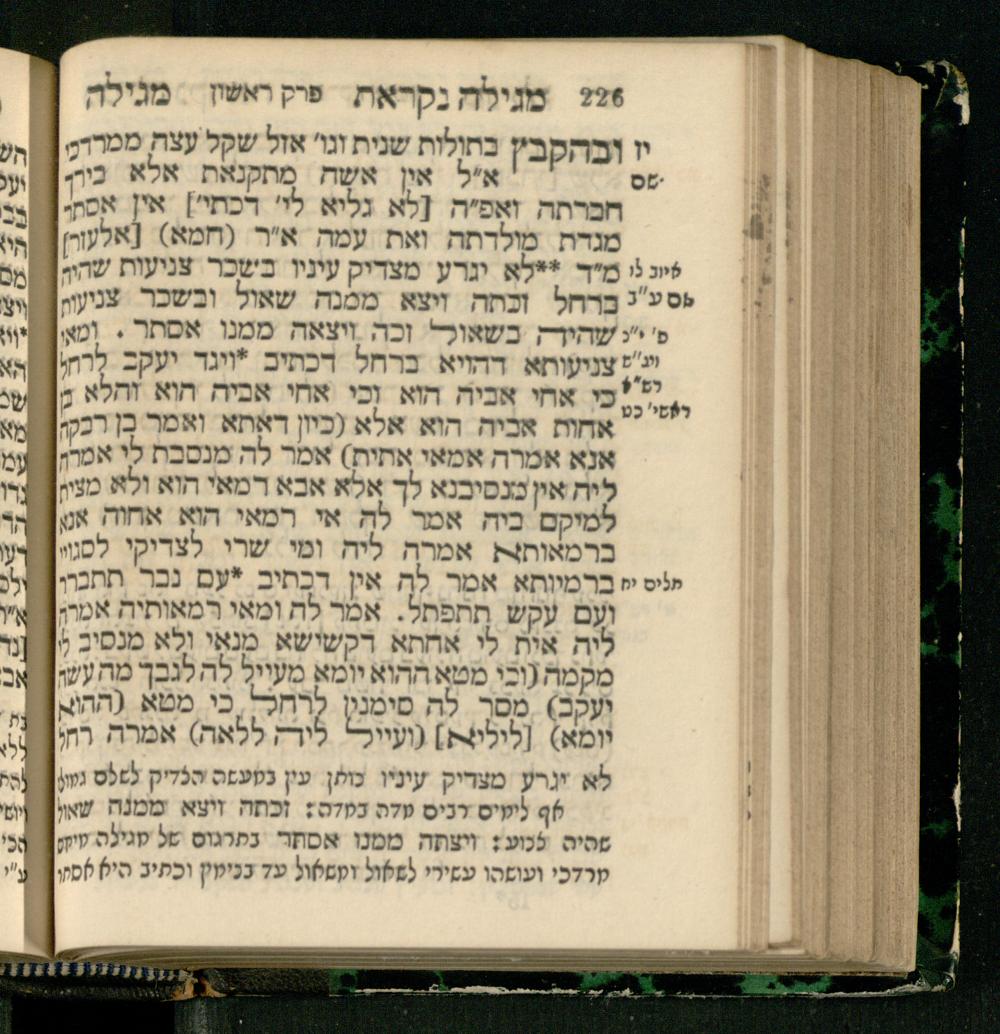 226 מגילה נקראת פרק ראשון מגילה
יז ובהקבץ בתולות שנית וגו׳ אזל שקל עצה ממרדכי
שם א״ל אין אשה מתקנאת אלא בירך
חברתה ואפ״ה [לא גליא לי׳ דכתי׳] אין אסתר
מגדת מולדתה ואת עמה א״ר (חמא) [אלעזר]
איוב לו מ״ד **לא יגרע מצדיק עיניו בשכר צניעות שהיה
שם ע״ב ברחל זכתה ויצא ממנה שאול ובשכר צניעות
פ׳ י״נ שהידה בשאול וכה ויצאה ממנו אסתר . ומאי
וינ״ש צניעותא דהויא ברחל דכתיב *ויגד יעקב לרחל
רש״א
ראשי׳ כט כי אחי אביה הוא וכי אחי אביה הוא והלא בן
אחות אביה הוא אלא (כיון דאתא ואמר בן רבקה
אנא אמרה אמאי אתית) אמר לה מנסבת לי אמרה
ליה אין מנסיבנא לך אלא אבא רמאי הוא ולא מצית
למיקם ביה אמר לה אי רמאי הוא אחוה אנא
ברמאותא אמרה ליה ומי שרי לצדיקי לסגויי
תלים יח ברמיותא אמר לה אין דכתיב *עם נבר תתברר
ועם עקש תתפתל. אמר לה ומאי רמאותיה אמרה
ליה אית לי אחתא דקשישא מנאי ולא מנסיב לי
מקמה (וכי מטא ההוא יומא מעייל לה לגבך מה עשה
יעקב) מסר לה סימנין לרחל כי מטא (ההוא
יומא) [ליליא] (ועייל לידה ללאה) אמרה רחל
לא יגרע מצדיק עיניו כותן עין במעשה הצדיק לשלם גמולו
אף לימים רבים מדה במדה: זכתה ויצא ממנה שאול
שהיה צנוע: ויצתה ממנו אסתר בתרגום של מגילה מיחס
מרדכי ועושהו עשירי לשאול ומשאול עד בנימין וכתיב היא אסתר